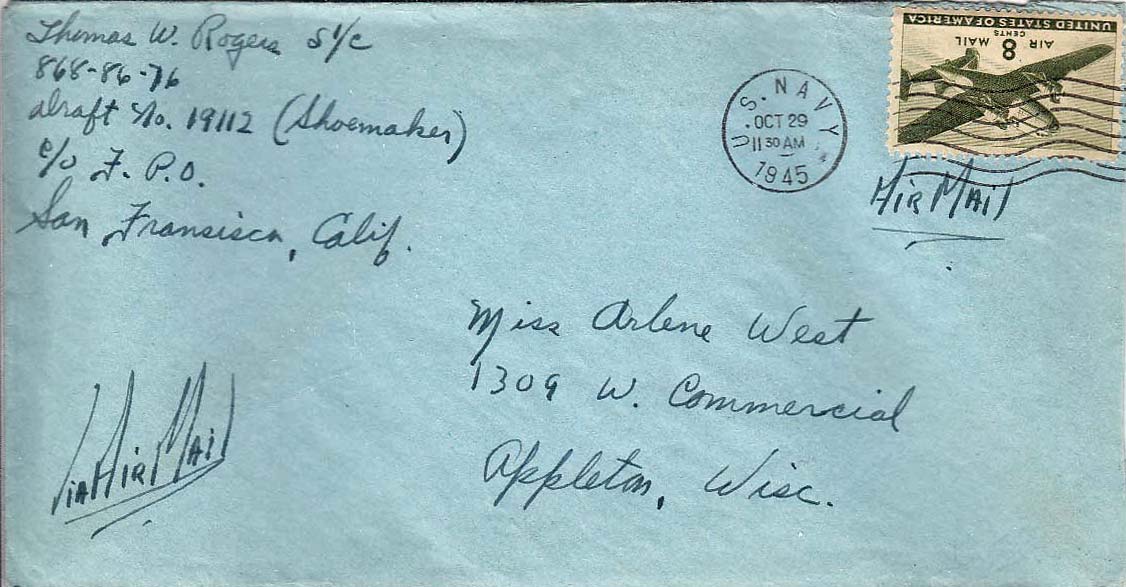 Thomas W. Rogers S 1/c
868-86-76
draft No. 19112 (Shoemaker)
c/o F. P. O.
San Fransisco, Calif.
U.S. NAVY
OCT 29
11 30 AM
1945
UNITED STATES OF AMERICA
AIR MAIL
8
CENTS
AIR MAIL
Miss Arlene West
1309 W. Commercial
Appleton, Wisc.
VIA AIR MAIL